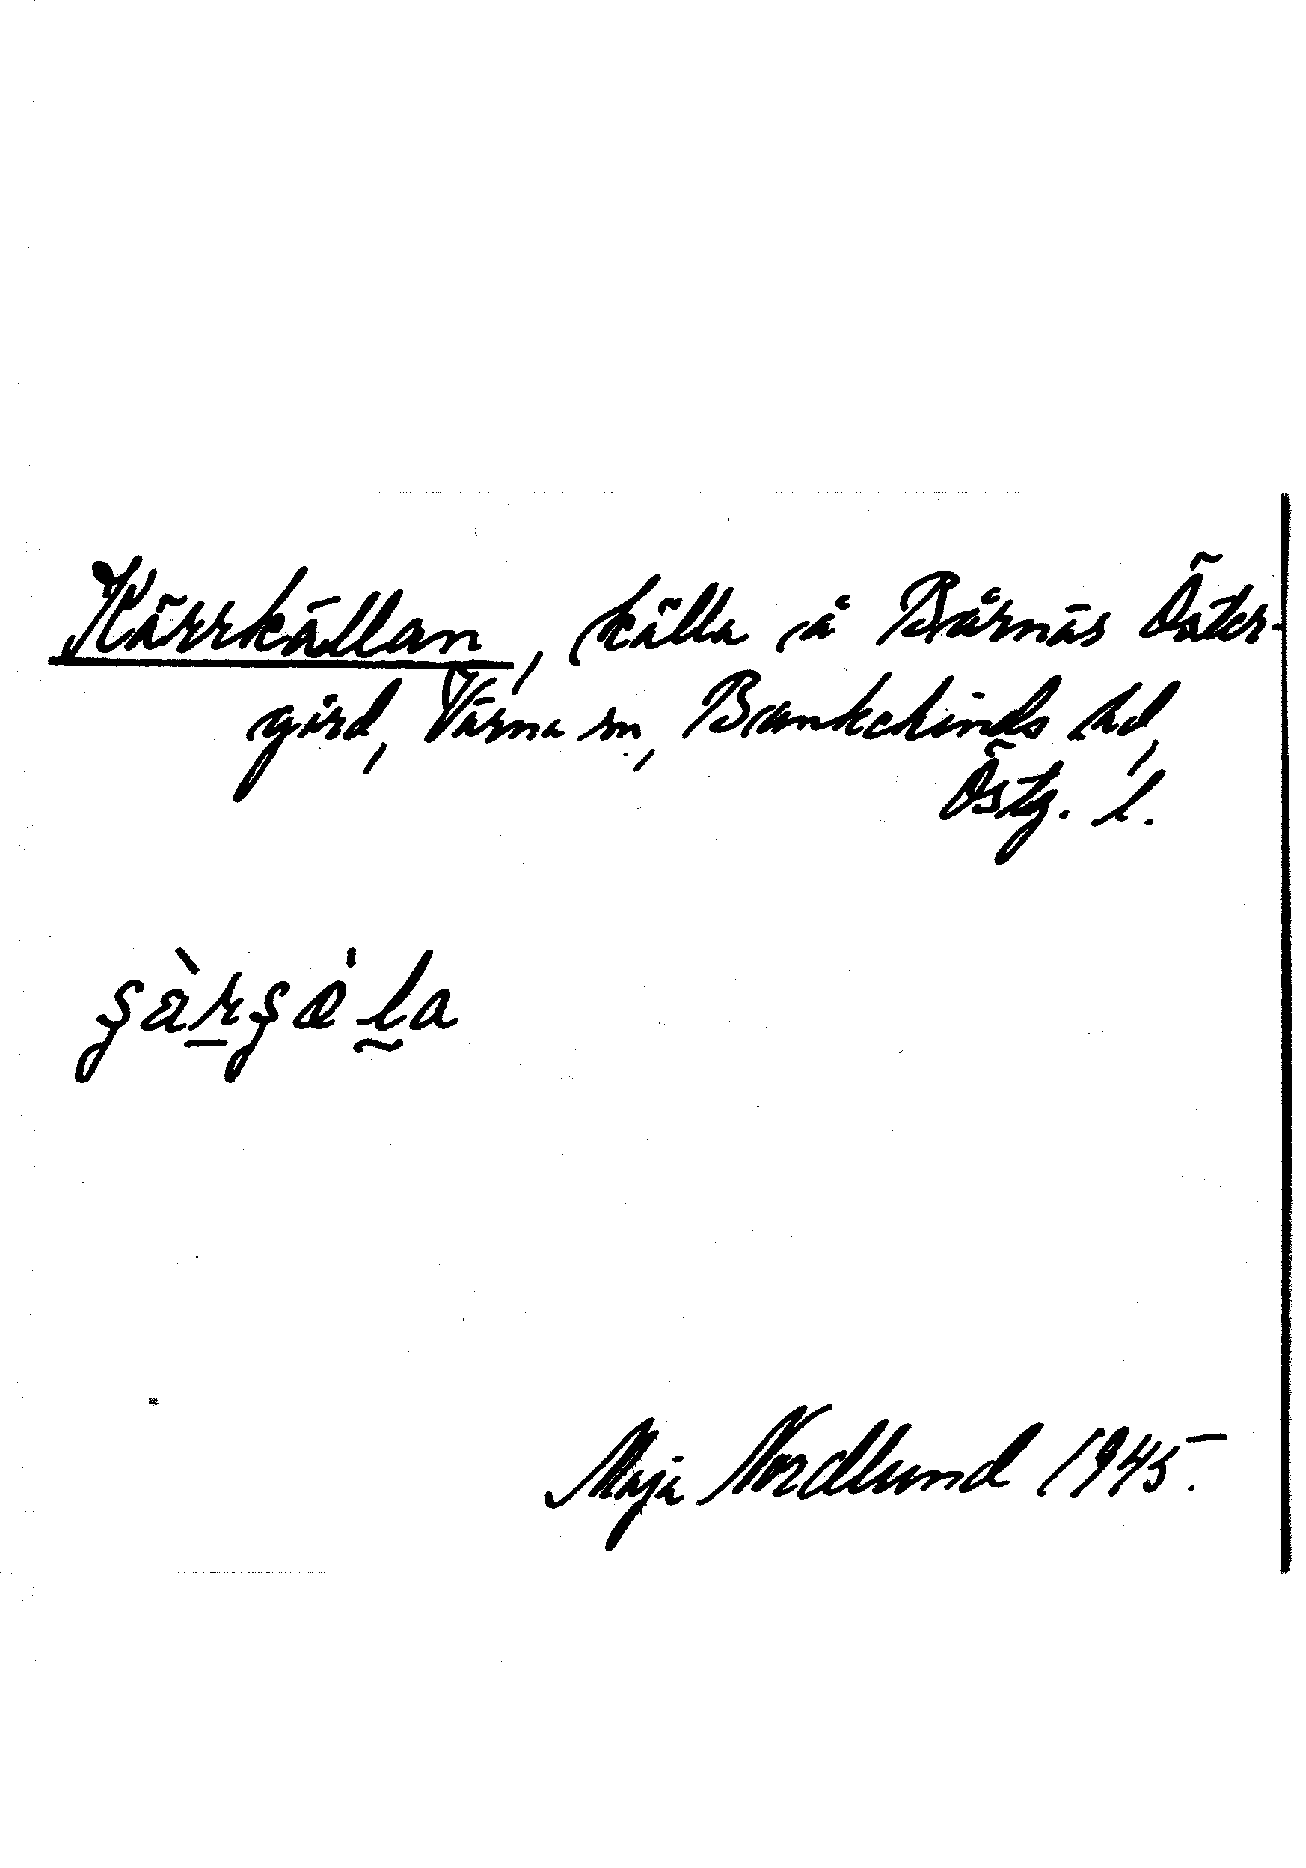 Kärrkällan, källa å Bårnäs Öster-
gård, Värna sn, Bankekinds hd,
Östg. l.
Maja Nordlund 1945.